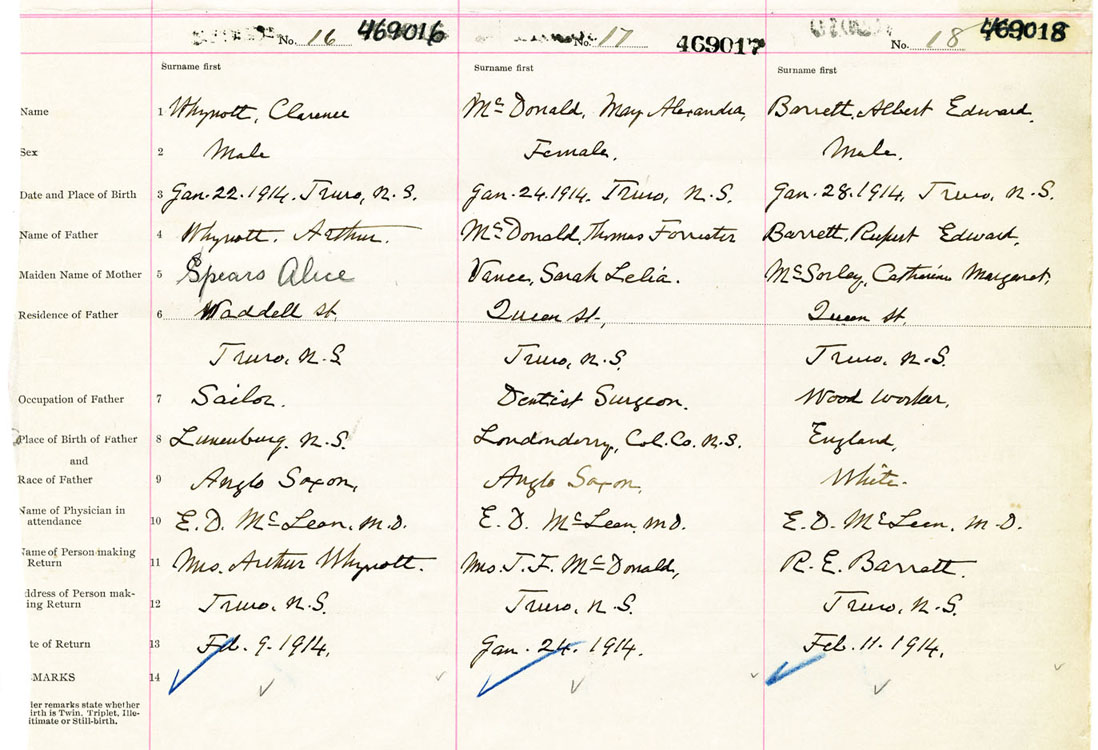 No. 16 469016 No. 17 469017 No. 18 469018
Surname first Surname first Surname first
Name 1 Whynott, Clarence McDonald, May Alexandra, Barrett, Albert Edward.
Sex 2 Male Female. Male.
Date and Place of Birth 3 Jan. 22. 1914. Truro, N.S. Jan. 24. 1914. Truro, N.S. Jan. 28. 1914, Truro, N.S.
Name of Father 4 Whynott. Arthur. McDonald, Thomas Forrester Barrett, Rupert Edward,
Maiden Name of Mother 5 Spears Alice Vance, Sarah Lelia. McSorley, Catherine Margaret,
Residence of Father 6 Waddell St. Queen St., Queen St.
Truro, N.S. Truro, N.S. Truro, N.S.
Occupation of Father 7 Sailor. Dentist Surgeon. Wood worker,
Place of Birth of Father 8 Lunenburg, N.S. Londonderry, Col. Co. N.S. England,
and
Race of Father 9 Anglo Saxon, Anglo Saxon, White.
Name of Physician in
attendance 10 E. D. McLean, M.D. E. D. McLean, M.D. E. D. McLean, M.D.
Name of Person making
Return 11 Mrs. Arthur Whynott. Mrs. T. F. McDonald, R. E. Barrett.
ddress of Person mak-
ing Return 12 Truro, N.S. Truro, N.S. Truro, N.S.
te of Return 13 Feb. 9. 1914. Jan. 24. 1914. Feb. 11. 1914.
MARKS 14
der remarks state whether
irth is Twin, Triplet, Ille-
itimate or Still-birth.